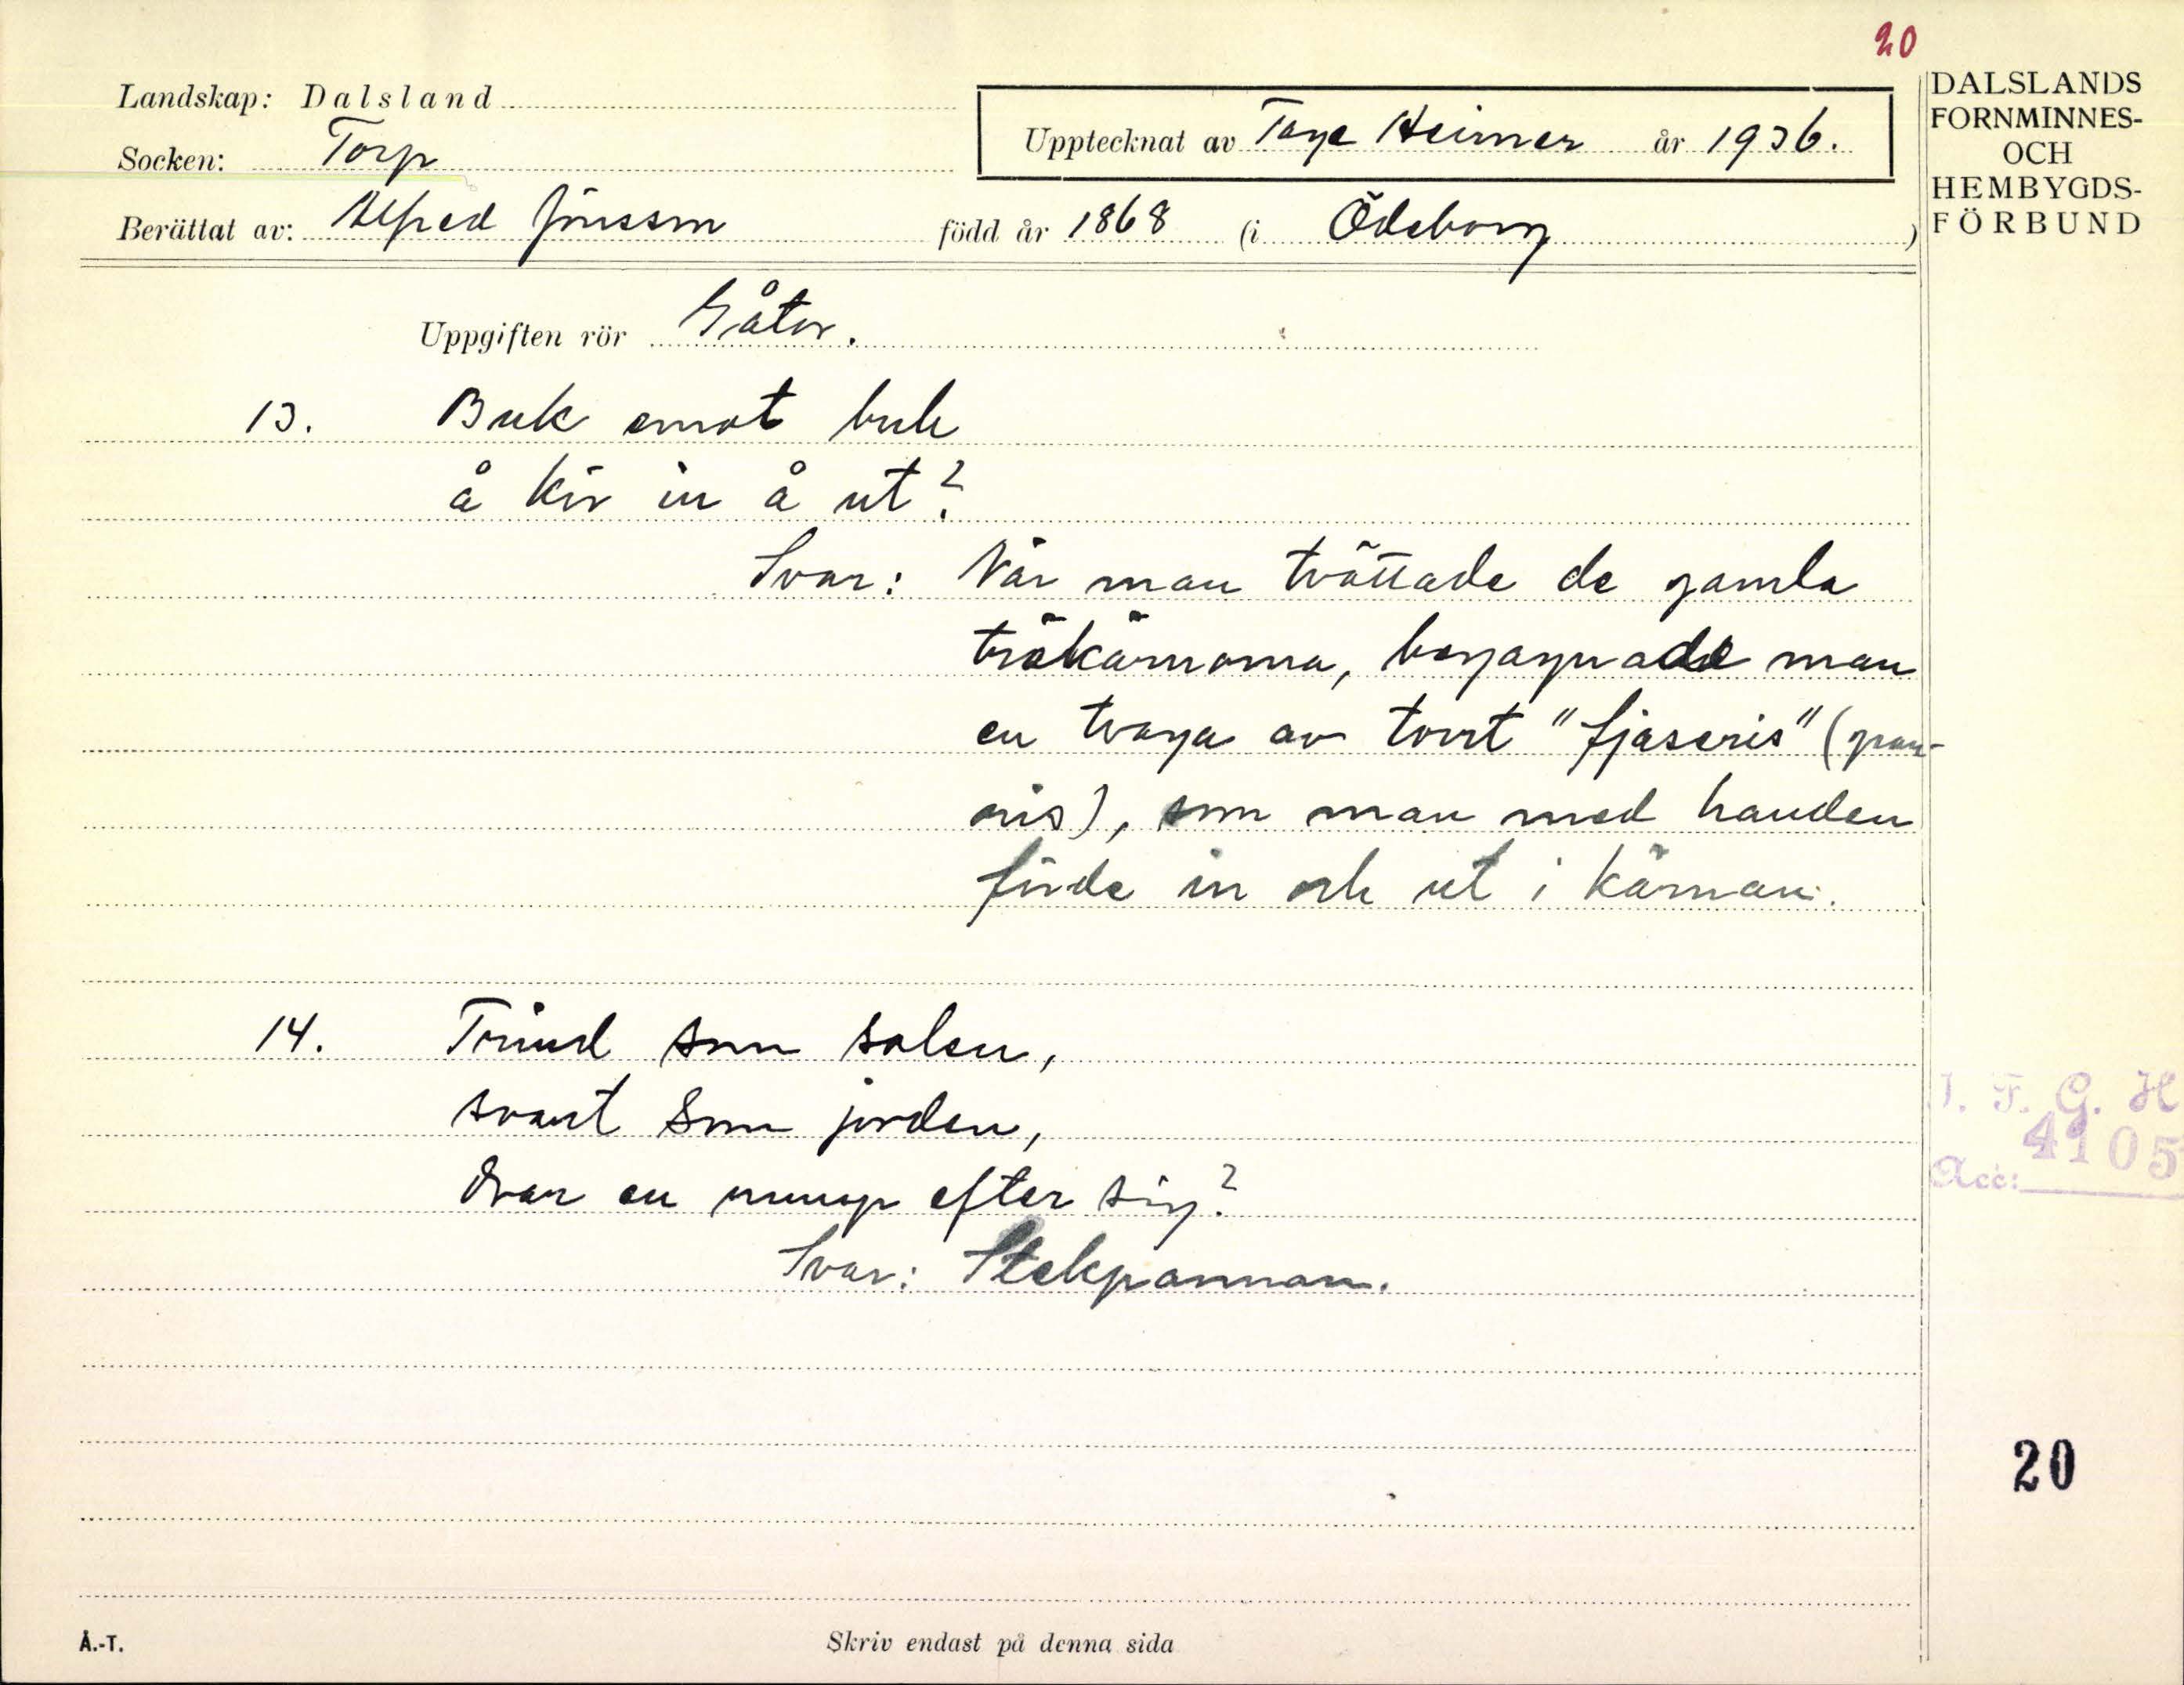 20
DALSLANDS
FORNMINNES-
OCH
HEMBYGDS-
FÖRBUND
Landskap: Dalsland
Upptecknat av Tage Heimer år 1936.
Socken: Torp
Berättat av: Alfred Jönsson född år 1868 (i Ödeborg)
Uppgiften rör Gåtor.
13. Buk emot buk
å kör in å ut?
Svar: När man tvättade de gamla
träkärnorna, begagnade man
en tvaga av torrt "fjaseris" (gran-
ris), som man med handen
förde in och ut i kärnan.
14. Trind som solen,
svart som jorden,
drar en rump efter sig?
Svar: Stekpannan.
I. F. G. H
4105
Acc:
20
Å.-T.
Skriv endast på denna sida